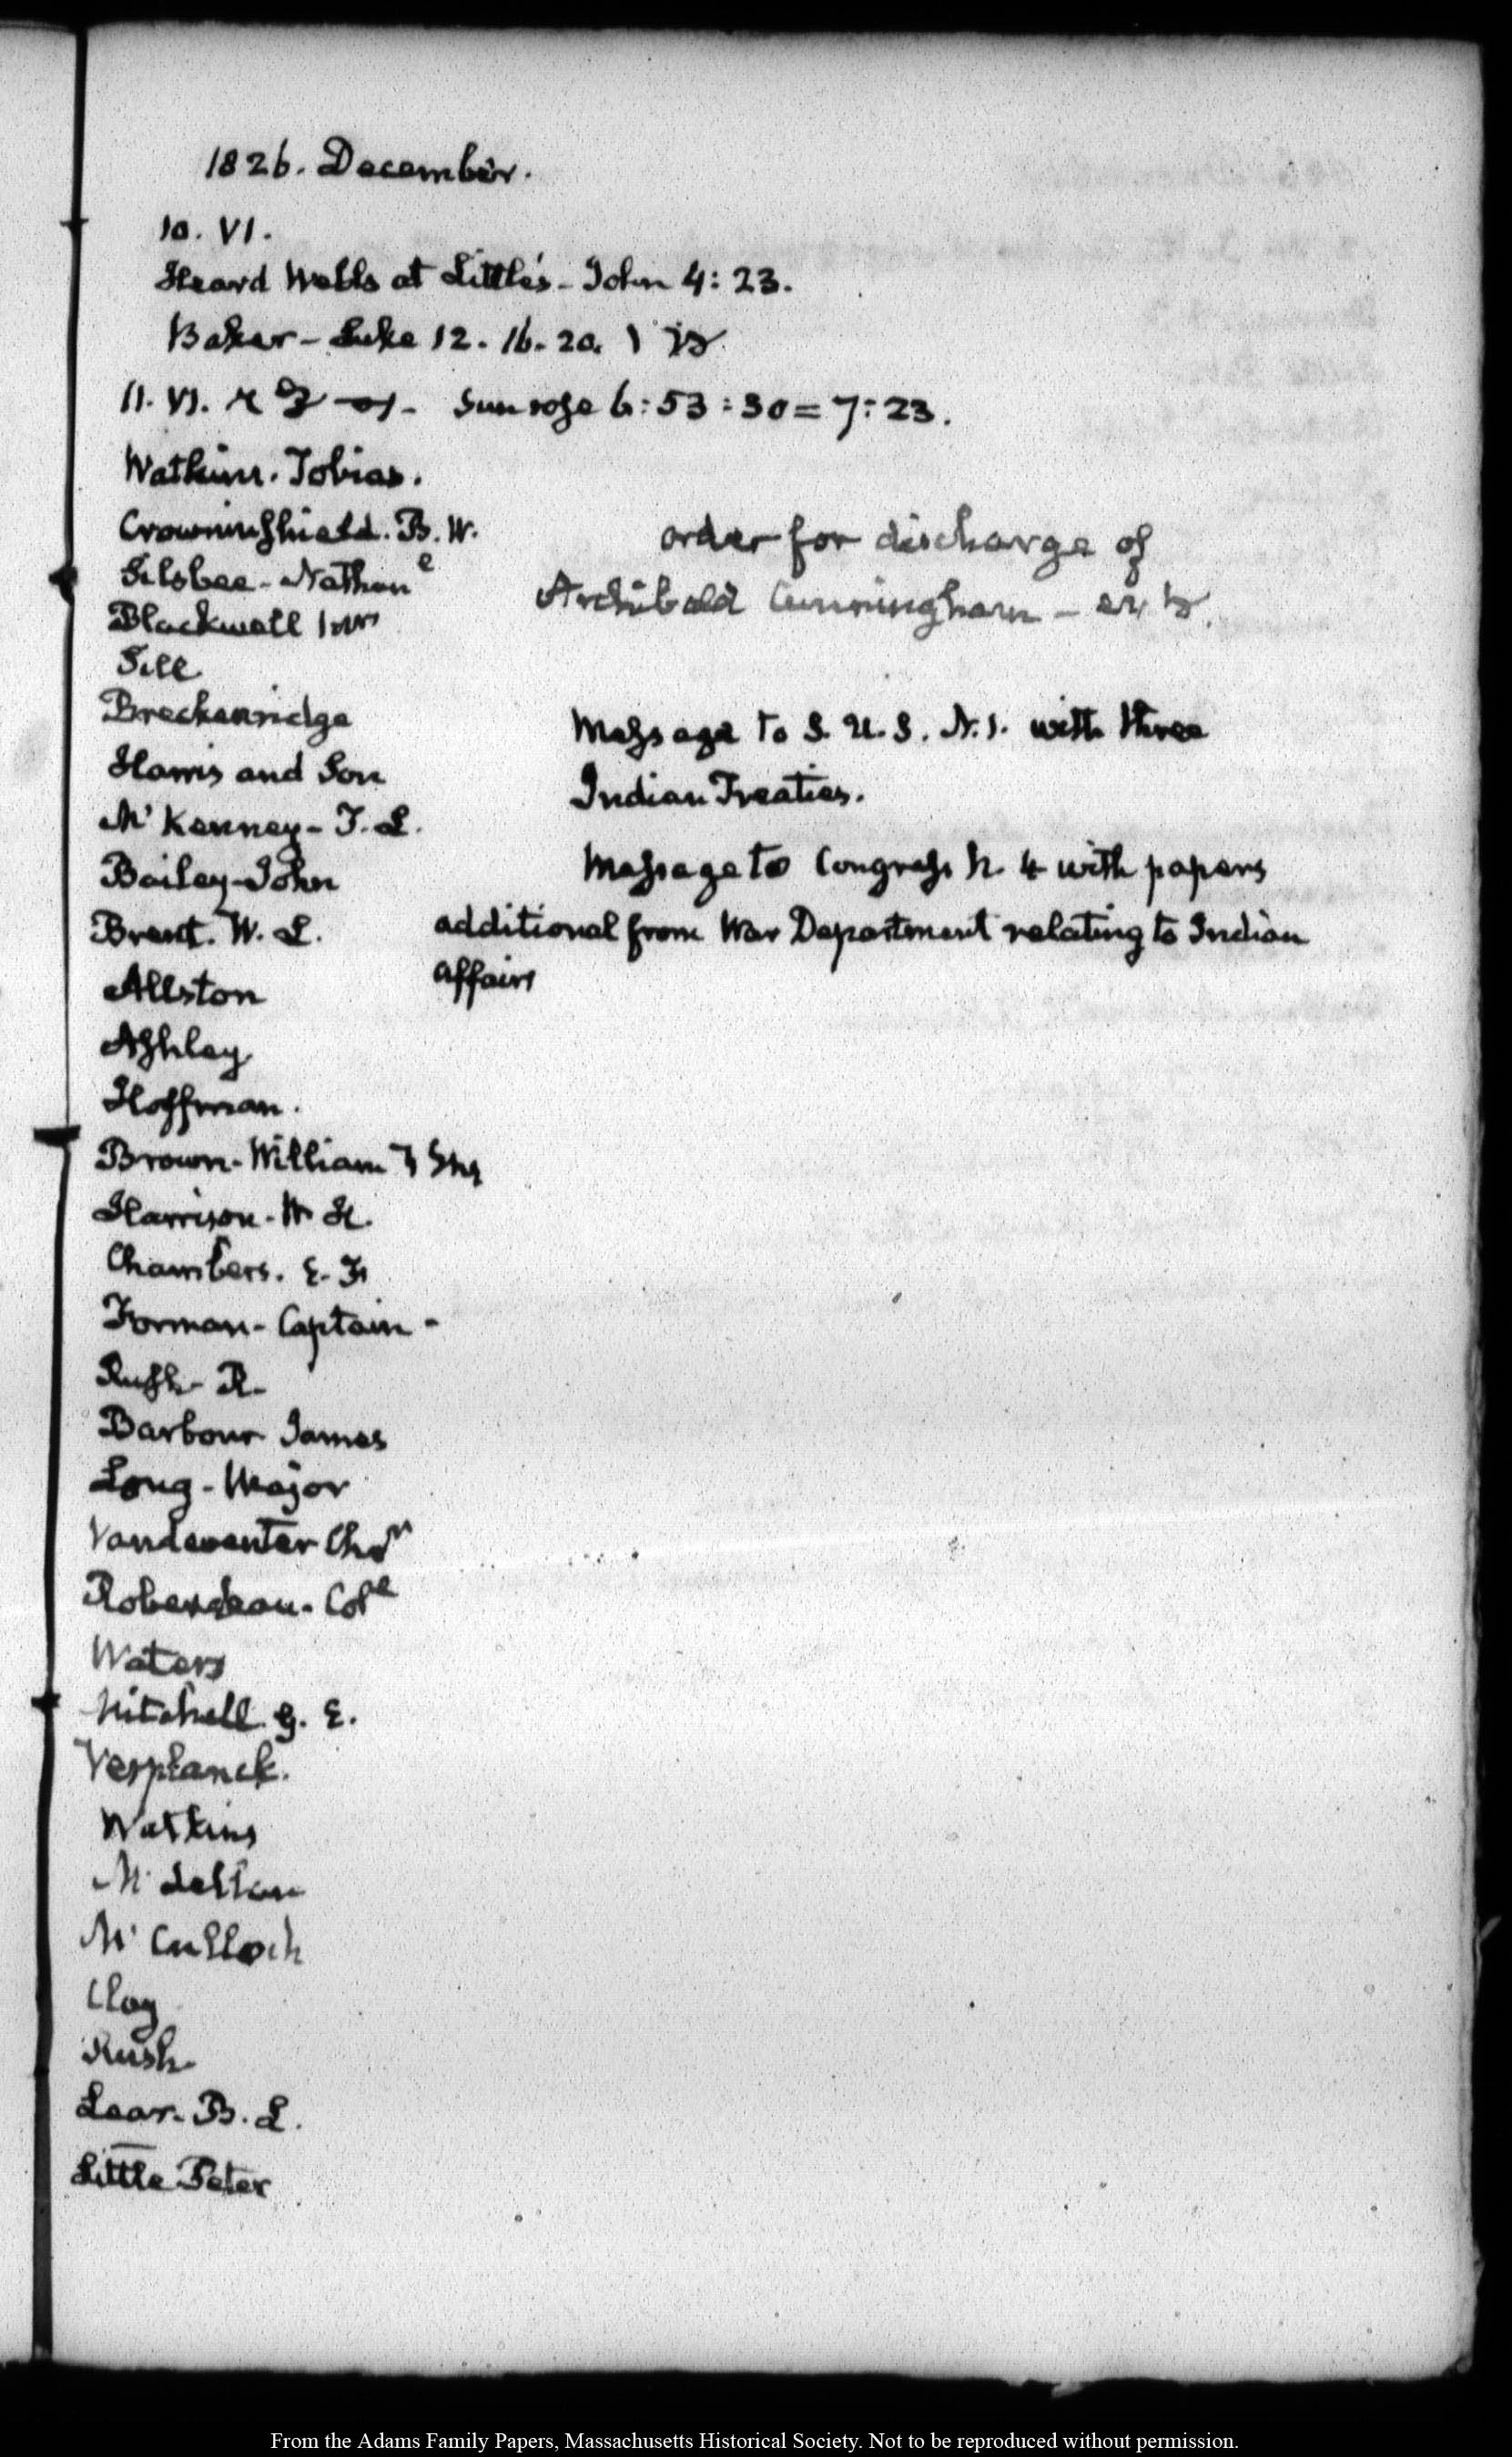 1826. December.
10. VI.
Heard Wells at Little's - John 4: 23.
Baker - Luke 12. 16-20.
11. VI. Sun rose 6:53:30 = 7:23.
Watkins. Tobias.
Crowninshield. B. W.
Silsbee - Nathan
Blackwell
Sill
Breckenridge
Harris and Son
Mc Kenney - T. L.
Bailey - John
Brent. W. L.
Allston
Ashley
Hoffman.
Brown - William
Harrison - W H.
Chambers. E. F.
Forman - Captain -
Rush - R.
Barbour James
Long - Major
Vandeventer Chr
Roberdeau - Col
Waters
Mitchell. G. E.
Verplanck.
Watkins
Mc Lellan
Mc Culloch
Clay
Rush
Lear. B. L.
Little Peter
order for discharge of
Archibald Cunningham -
Message to S. U. S. N. 1. with three
Indian Treaties.
Message to Congress N. 4 with papers
additional from War Department relating to Indian
affairs
From the Adams Family Papers, Massachusetts Historical Society. Not to be reproduced without permission.